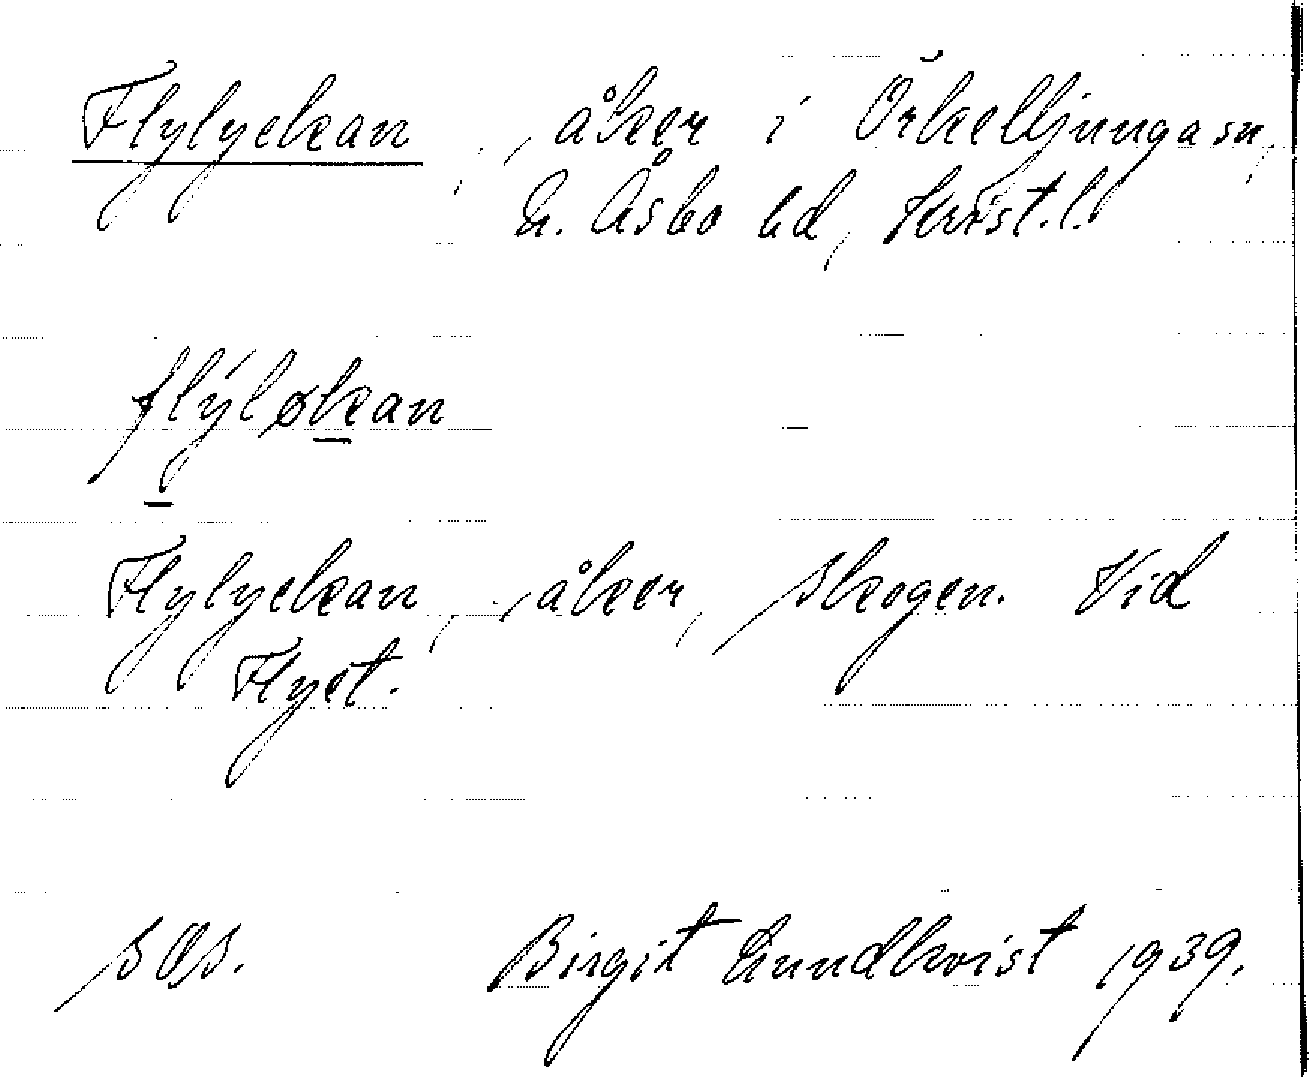 Flylyckan, åker i Örkelljunga sn,
N. Åsbo hd, Krist. l.
flýløkan
Flylyckan, åker, skogen. Vid
Flyet.
sås.
Birgit Lundkvist 1939.